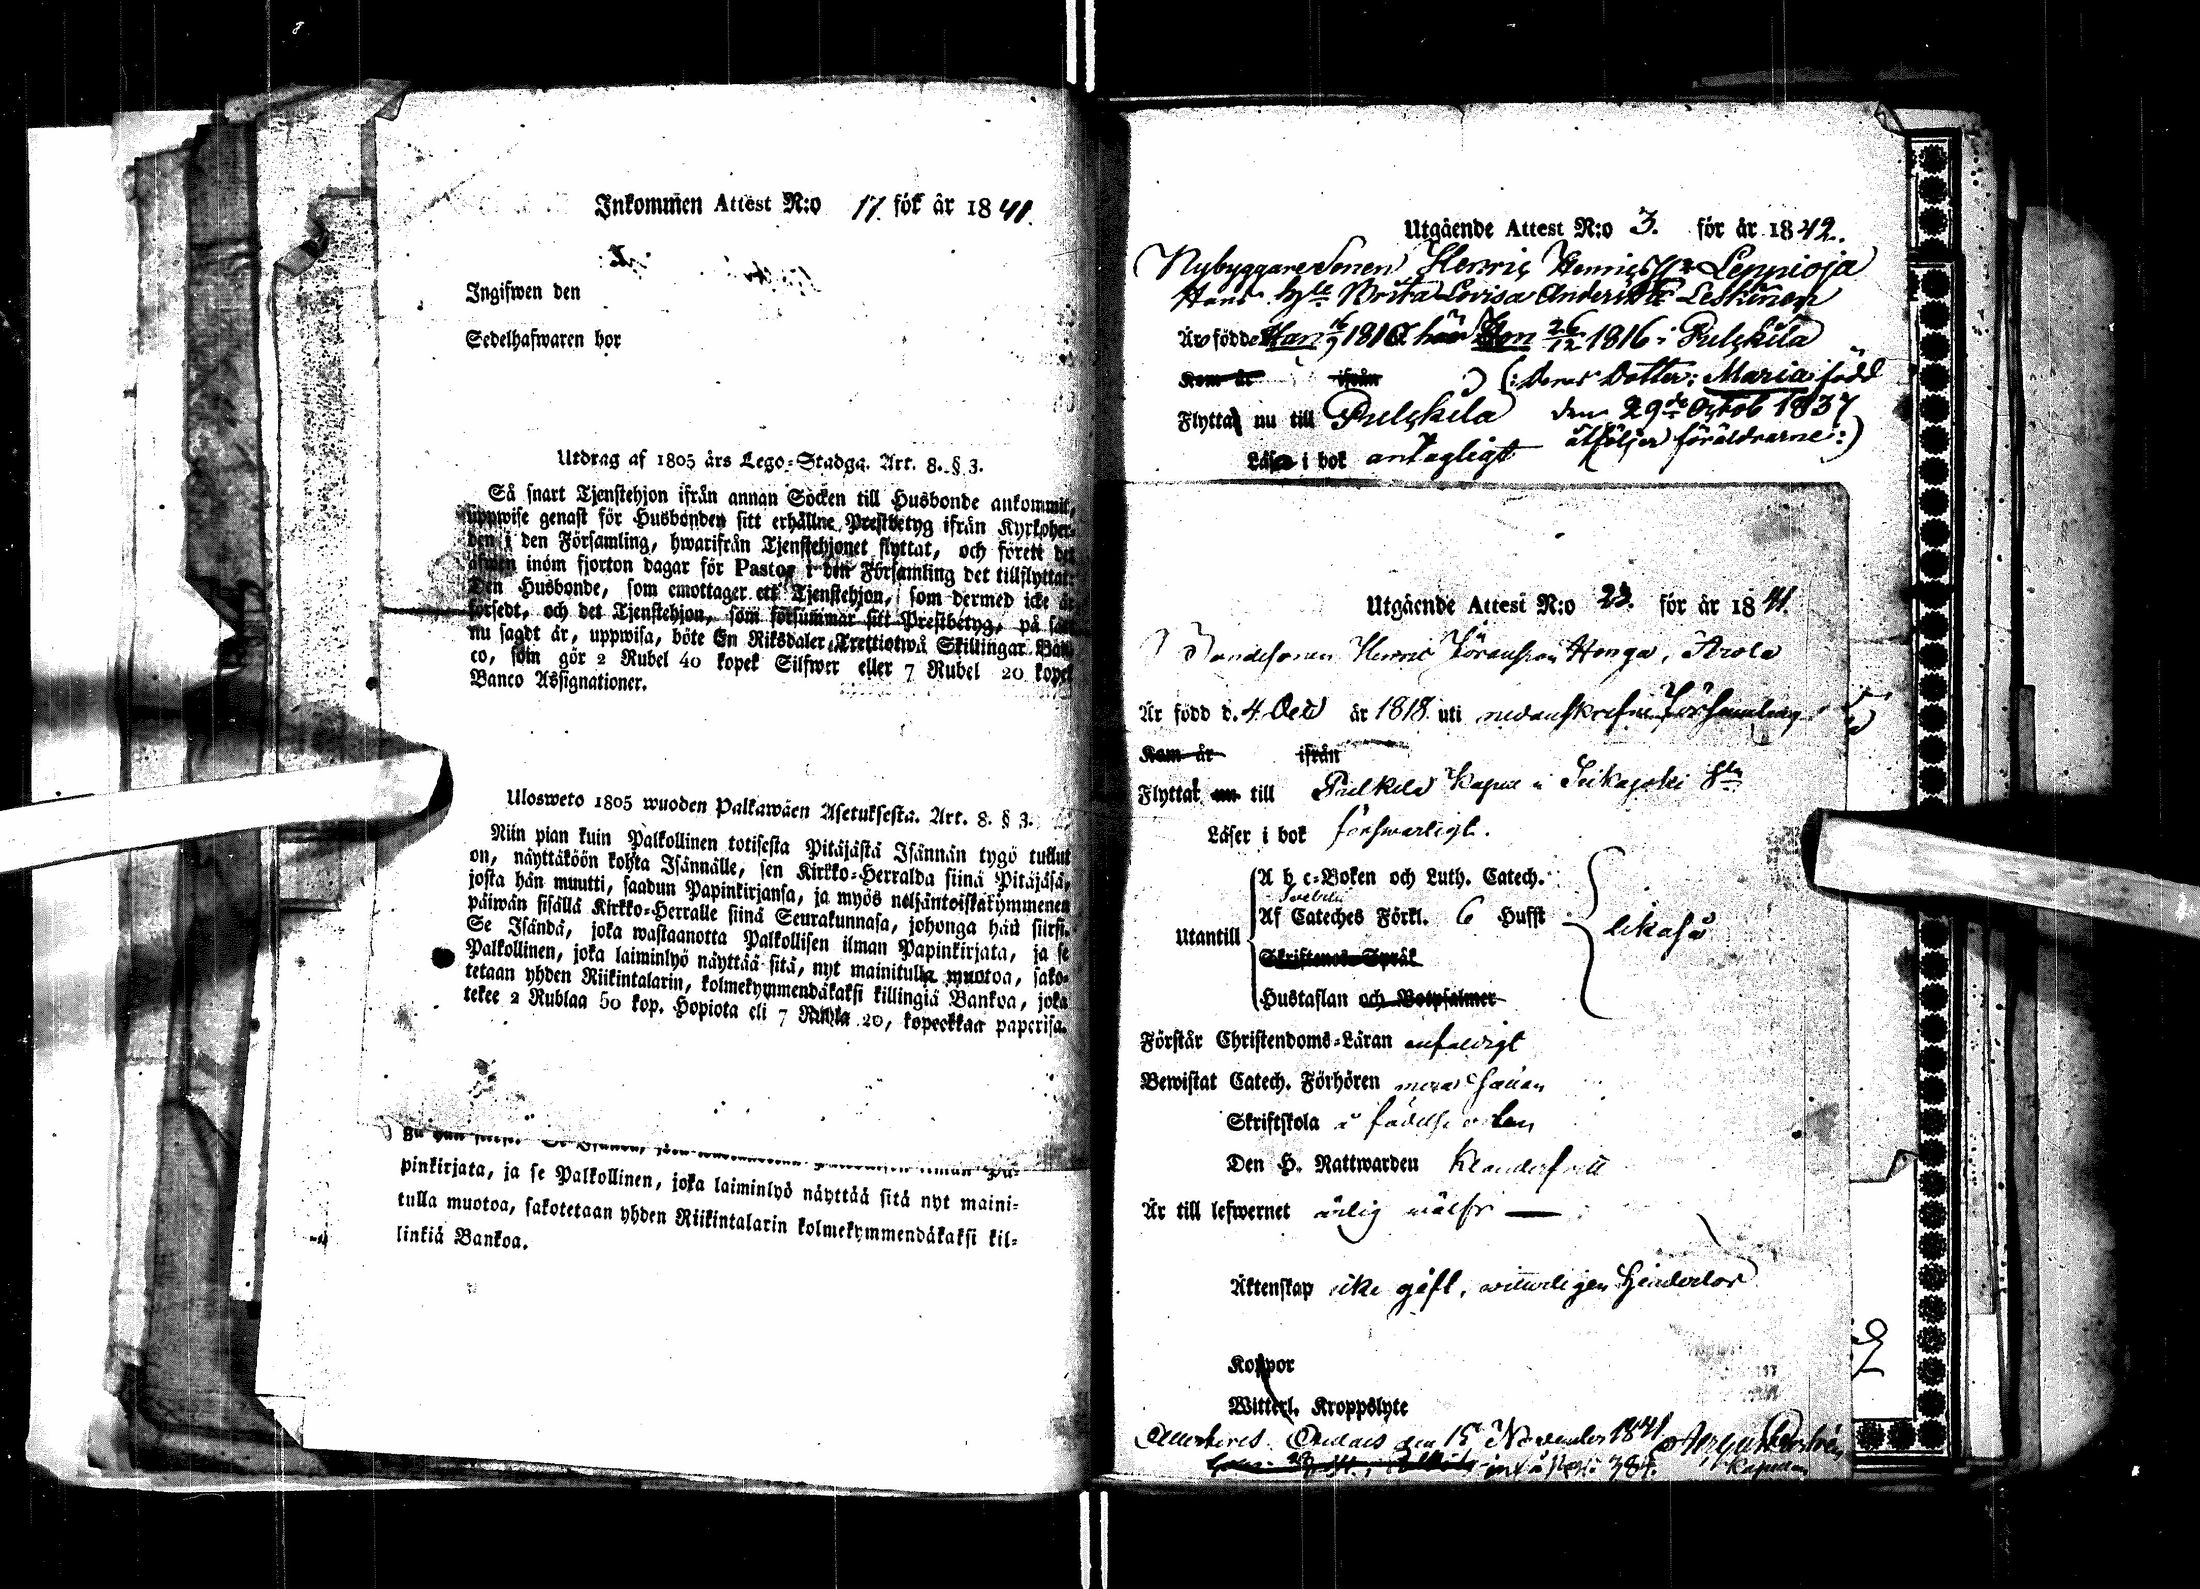 Inkommen Attest N:o 17. för år 1841.
Ingifwen den
Sedelhafwaren bor
Utdrag af 1805 års Lego-Stadga. Art. 8. § 3.
Så snart Tjenstehjon ifrån annan Socken till Husbonde ankommit,
uppwise genast för Husbonden sitt erhållne Prestbetyg ifrån Kyrkoher-
den i den Församling, hwarifrån Tjenstehjonet flyttat, och förete det
äfwen inom fjorton dagar för Pastor i den Församling det tillflyttat.
Den Husbonde, som emottager ett Tjenstehjon, som dermed icke är
försedt, och det Tjenstehjon, som försummar sitt Prestbetyg, på sätt
nu sagdt är, uppwisa, böte En Riksdaler Trettiotwå Skillingar Ban-
co, som gör 2 Rubel 40 kopek Silfwer eller 7 Rubel 20 kopek
Banco Assignationer.
Ulosweto 1805 wuoden Palkawäen Asetuksesta. Art. 8. § 3.
Niin pian kuin Palkollinen totisesta Pitäjästä Isännän tygö tullut
on, näyttäköön kohta Isännälle, sen Kirkko-Herralda siinä Pitäjäsä,
josta hän muutti, saadun Papinkirjansa, ja myös neljäntoistakymmenen
päiwän sisällä Kirkko-Herralle siinä Seurakunnasa, johonga hän siirsi.
Se Isändä, joka wastaanotta Palkollisen ilman Papinkirjata, ja se
Palkollinen, joka laiminlyö näyttää sitä, nyt mainitulla muotoa, sako-
tetaan yhden Riikintalarin, kolmekymmendäkaksi killingiä Bankoa, joka
tekee 2 Rublaa 50 kop. Hopiota eli 7 Rubla 20, kopeekkaa paperisa.
pinkirjata, ja se Palkollinen, joka laiminlyö näyttää sitä nyt maini-
tulla muotoa, sakotetaan yhden Riikintalarin kolmekymmendäkaksi kil-
linkiä Bankoa.
Utgående Attest N:o 3. för år 1842.
Nybyggare Sonen Henric Henricss: Leppioja
Hans h Brita Lovisa Andersdr Leskinen
Äro födde Han 1810 här Hon 26/12 1816 i Pulckila
Kom år ifrån (: deras Dotter: Maria född
Flytta nu till Pulckila den 29de Octob 1837
åtföljer föräldrarne:)
Läsa i bok antagligt
Utgående Attest N:o 23. för år 1841.
Bondesonen Henric Göransson Honga,
Är född d. 4 Oct år 1818. uti nedanskrefne Församling
Kom år ifrån
Flyttat nu till Pulkila Kapell i Siikajoki Sn
Läser i bok förswarligt.
Utantill
A b c-Boken och Luth. Catech.
Svebelii
Af Cateches Förkl. 6 Hufst
likaså
Skriftenes Språk
Hustaflan och Botpsalmer
Förstår Christendoms-Läran enfaldigt
Bewistat Catech. Förhören
Skriftskola i födelse orten
Den H. Nattwarden klanderfritt
Är till lefwernet ärlig
Äktenskap icke gift, witterligen hinderlös
Koppor
Witterl. Kroppslyte
Attesteras den 15 November 1841
Kapellan